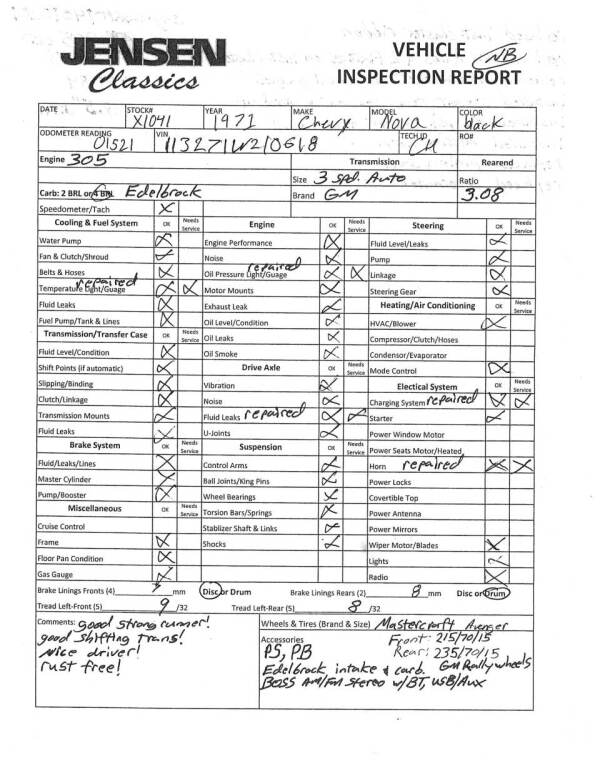 JENSEN
Classics
VEHICLE NB
INSPECTION REPORT
DATE STOCK# X1041 YEAR 1971 MAKE Chevy MODEL Nova COLOR black
ODOMETER READING 01521 VIN 113271W210618 TECH ID CH RO#
Engine 305 Transmission Rearend
Size 3 spd. Auto Ratio
Carb: 2 BRL or 4 BRL Edelbrock Brand GM 3.08
Speedometer/Tach X
Cooling & Fuel System OK Needs Service Engine OK Needs Service Steering OK Needs Service
Water Pump X Engine Performance X Fluid Level/Leaks X
Fan & Clutch/Shroud X Noise X Pump X
Belts & Hoses X Oil Pressure Light/Guage repaired X X Linkage X
Temperature Light/Guage repaired X X Motor Mounts X Steering Gear X
Fluid Leaks X Exhaust Leak X Heating/Air Conditioning OK Needs Service
Fuel Pump/Tank & Lines X Oil Level/Condition X HVAC/Blower X
Transmission/Transfer Case OK Needs Service Oil Leaks X Compressor/Clutch/Hoses
Fluid Level/Condition X Oil Smoke X Condensor/Evaporator
Shift Points (if automatic) X Drive Axle OK Needs Service Mode Control X
Slipping/Binding X Vibration X Electical System OK Needs Service
Clutch/Linkage X Noise X Charging System repaired X X
Transmission Mounts X Fluid Leaks repaired X X Starter X
Fluid Leaks X U-Joints X Power Window Motor
Brake System OK Needs Service Suspension OK Needs Service Power Seats Motor/Heated
Fluid/Leaks/Lines X Control Arms X Horn repaired X X
Master Cylinder X Ball Joints/King Pins X Power Locks
Pump/Booster X Wheel Bearings X Covertible Top
Miscellaneous OK Needs Service Torsion Bars/Springs X Power Antenna
Cruise Control Stablizer Shaft & Links X Power Mirrors
Frame X Shocks X Wiper Motor/Blades X
Floor Pan Condition X Lights
Gas Gauge X Radio X
Brake Linings Fronts (4) mm Disc or Drum Brake Linings Rears (2) 8 mm Disc or Drum
Tread Left-Front (5) 9 /32 Tread Left-Rear (5) 8 /32
Comments: good strong runner!
good shifting trans!
Nice driver!
rust free!
Wheels & Tires (Brand & Size) Mastercraft Avenger
Accessories Front: 215/70/15
PS, PB Rear: 235/70/15
Edelbrock intake & carb. GM Rally wheels
BOSS AM/FM Stereo w/BT, USB/Aux